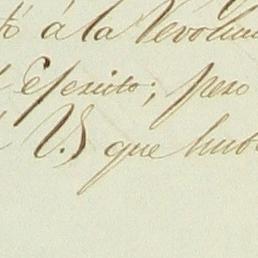 á la Revoluci
Egercito; pero
V.S que hub